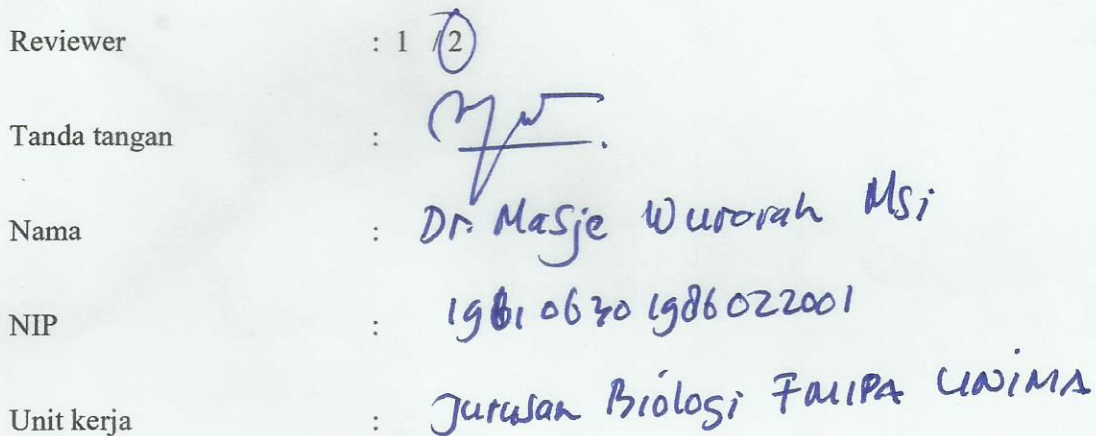 Reviewer : 1 / 2
Tanda tangan :
Nama : Dr. Masje Wurarah Msi
NIP : 196106301986022001
Unit kerja : Jurusan Biologi FMIPA UNIMA